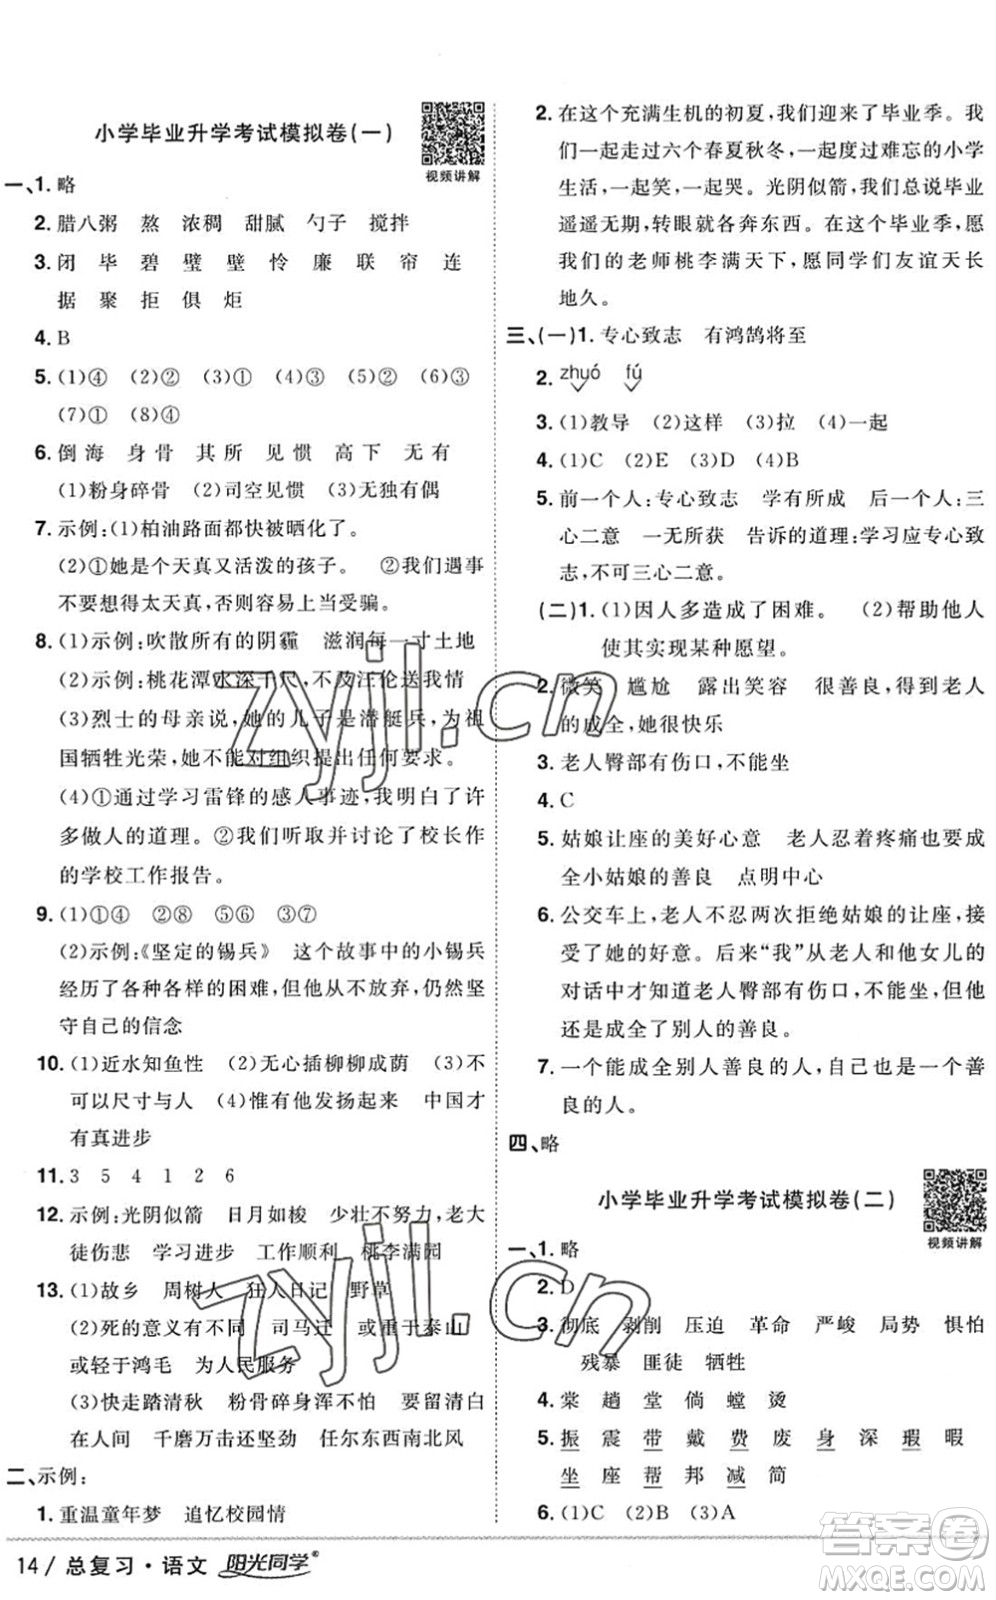 小学毕业升学考试模拟卷(一)
视频讲解
一、1. 略
2. 腊八粥 熬 浓稠 甜腻 勺子 搅拌
3. 闭 毕 碧 璧 壁 怜 廉 联 帘 连
据 聚 拒 俱 炬
4. B
5. (1)④ (2)② (3)① (4)③ (5)② (6)②
(7)① (8)④
6. 倒 海 身 骨 其 所 见 惯 高 下 无 有
(1)粉身碎骨 (2)司空见惯 (3)无独有偶
7. 示例:(1)柏油路面都快被晒化了。
(2)①她是个天真又活泼的孩子。 ②我们遇事
不要想得太天真,否则容易上当受骗。
8. (1)示例:吹散所有的阴霾 滋润每一寸土地
(2)示例:桃花潭水深千尺,不及汪伦送我情
(3)烈士的母亲说,她的儿子是潜艇兵,为祖
国牺牲光荣,她不能对组织提出任何要求。
(4)①通过学习雷锋的感人事迹,我明白了许
多做人的道理。②我们听取并讨论了校长作
的学校工作报告。
9. (1)①④ ②⑧ ⑤⑥ ③⑦
(2)示例:《坚定的锡兵》 这个故事中的小锡兵
经历了各种各样的困难,但他从不放弃,仍然坚
守自己的信念
10. (1)近水知鱼性 (2)无心插柳柳成荫 (3)不
可以尺寸与人 (4)惟有他发扬起来 中国才
有真进步
11. 3 5 4 1 2 6
12. 示例:光阴似箭 日月如梭 少壮不努力,老大
徒伤悲 学习进步 工作顺利 桃李满园
13. (1)故乡 周树人 狂人日记 野草
(2)死的意义有不同 司马迁 或重于泰山
或轻于鸿毛 为人民服务
(3)快走踏清秋 粉骨碎身浑不怕 要留清白
在人间 千磨万击还坚劲 任尔东西南北风
二、示例:
1. 重温童年梦 追忆校园情
2. 在这个充满生机的初夏,我们迎来了毕业季。我
们一起走过六个春夏秋冬,一起度过难忘的小学
生活,一起笑,一起哭。光阴似箭,我们总说毕业
遥遥无期,转眼就各奔东西。在这个毕业季,愿
我们的老师桃李满天下,愿同学们友谊天长
地久。
三、(一)1. 专心致志 有鸿鹄将至
2. zhuó fú
3. (1)教导 (2)这样 (3)拉 (4)一起
4. (1)C (2)E (3)D (4)B
5. 前一个人:专心致志 学有所成 后一个人:三
心二意 一无所获 告诉的道理:学习应专心致
志,不可三心二意。
(二)1. (1)因人多造成了困难。 (2)帮助他人
使其实现某种愿望。
2. 微笑 尴尬 露出笑容 很善良,得到老人
的成全,她很快乐
3. 老人臀部有伤口,不能坐
4. C
5. 姑娘让座的美好心意 老人忍着疼痛也要成
全小姑娘的善良 点明中心
6. 公交车上,老人不忍两次拒绝姑娘的让座,接
受了她的好意。后来“我”从老人和他女儿的
对话中才知道老人臀部有伤口,不能坐,但他
还是成全了别人的善良。
7. 一个能成全别人善良的人,自己也是一个善
良的人。
四、略
小学毕业升学考试模拟卷(二)
视频讲解
一、1. 略
2. D
3. 彻底 剥削 压迫 革命 严峻 局势 惧怕
残暴 匪徒 牺牲
4. 棠 趟 堂 倘 螳 烫
5. 振 震 带 戴 费 废 身 深 瑕 暇
坐 座 帮 邦 减 简
6. (1)C (2)B (3)A
14 / 总复习·语文 阳光同学®
zyjl.cn
zyjl.cn
答案圈
MXQE.COM